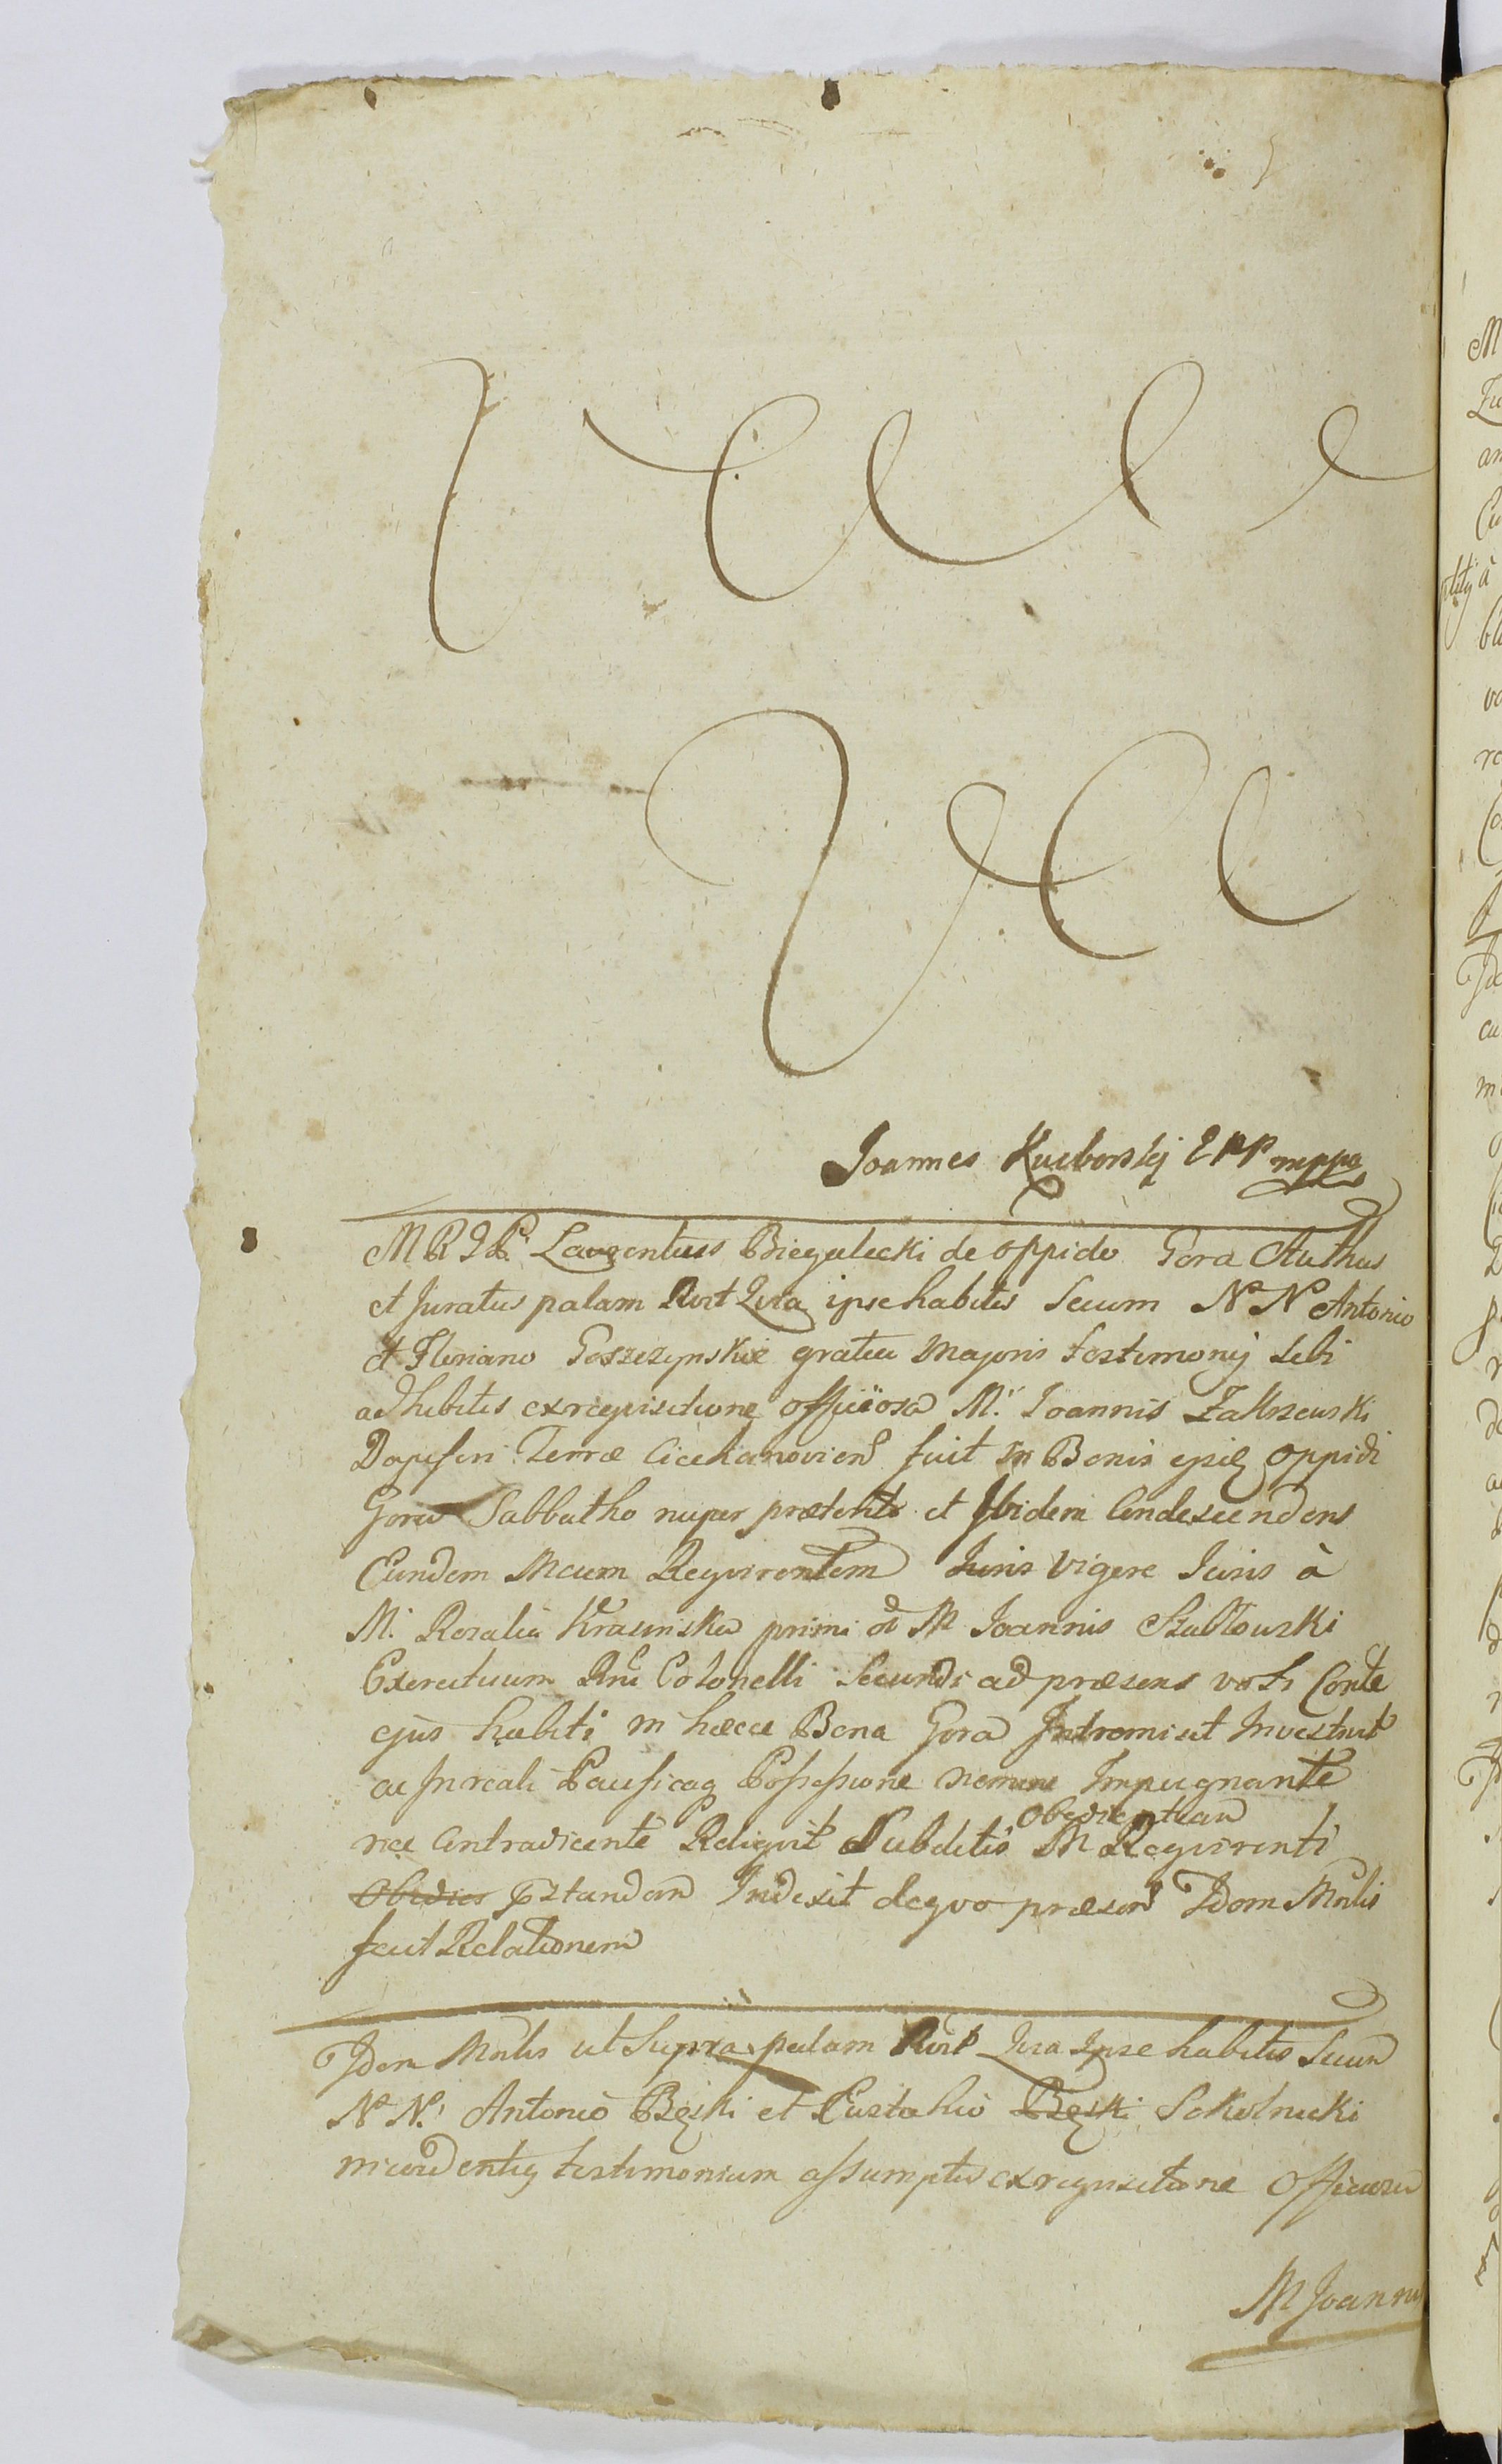 Joannes Kuiborskj EPP mppa
MRGR Laurentius Biegalecki de oppido Gora Authus
et Juratus palam Rvit Quia ipse habitis Secum NN Antonio
et Floriano Goszczynskie gratia Majoris testimonij Sibi
adhibitis ex requisitione officiosa M. Joannis Zakrzewski
Dapiferi Terræ Ciechanoviens fuit in Bonis ejus oppidi
Gora Sabbatho nuper præterito et Ibidem Condescendens
Eundem Mcum Reqvirentem Juris Vigore Juris à
M. Rosalia Krasinska primi et M Joannis Szabłowski
Exercituum Rni Colonelli Secundi ad præsens voti Conte
ejus habiti in hæcce Bona Gora Intromisit Investivit
ac In reali Pacificaq Possessione nemine Impugnante
Obedientiam
nec Contradicente Reliqvit Subditis M Reqvirenti
Obedien pstandam Indixit de qvo præsens Idem Mnlis
fecit Relationem
Idem Mnlis ut Supra palam Rvit Quia Ipse habitis Secum
NN Antonio Bęski et Eustahio Bęski Sokolnicki
in evidentiq testimonium assumptis ex requisitione Officiosa
M Joannis